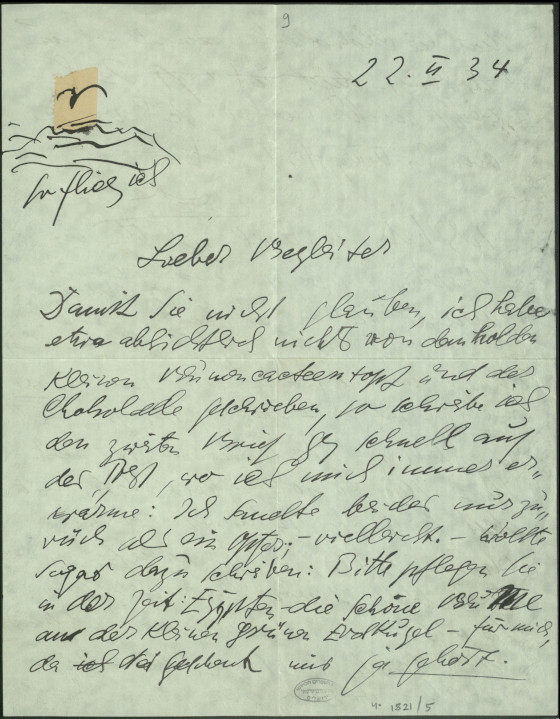 9
22. II 34
So flieg ich
Lieber Begleiter
Damit Sie nicht glauben, ich habe
etwa absichtlich nichts von dem holden
kleinen und der
Chokolade geschrieben, so schreibe ich
den zweiten Brief schnell auf
der Post, wo ich mich immer er-
wärme: Ich sandte beides nur zu-
rück als ein Opfer; – vielleicht. – wollte
sogar dazu schreiben: Bitte pflegen Sie
in der Zeit: Egypten – die schöne
aus der kleinen grünen Erdkugel – für mich,
da ich das Geschenk mir ja gehört.
4° 1821/5